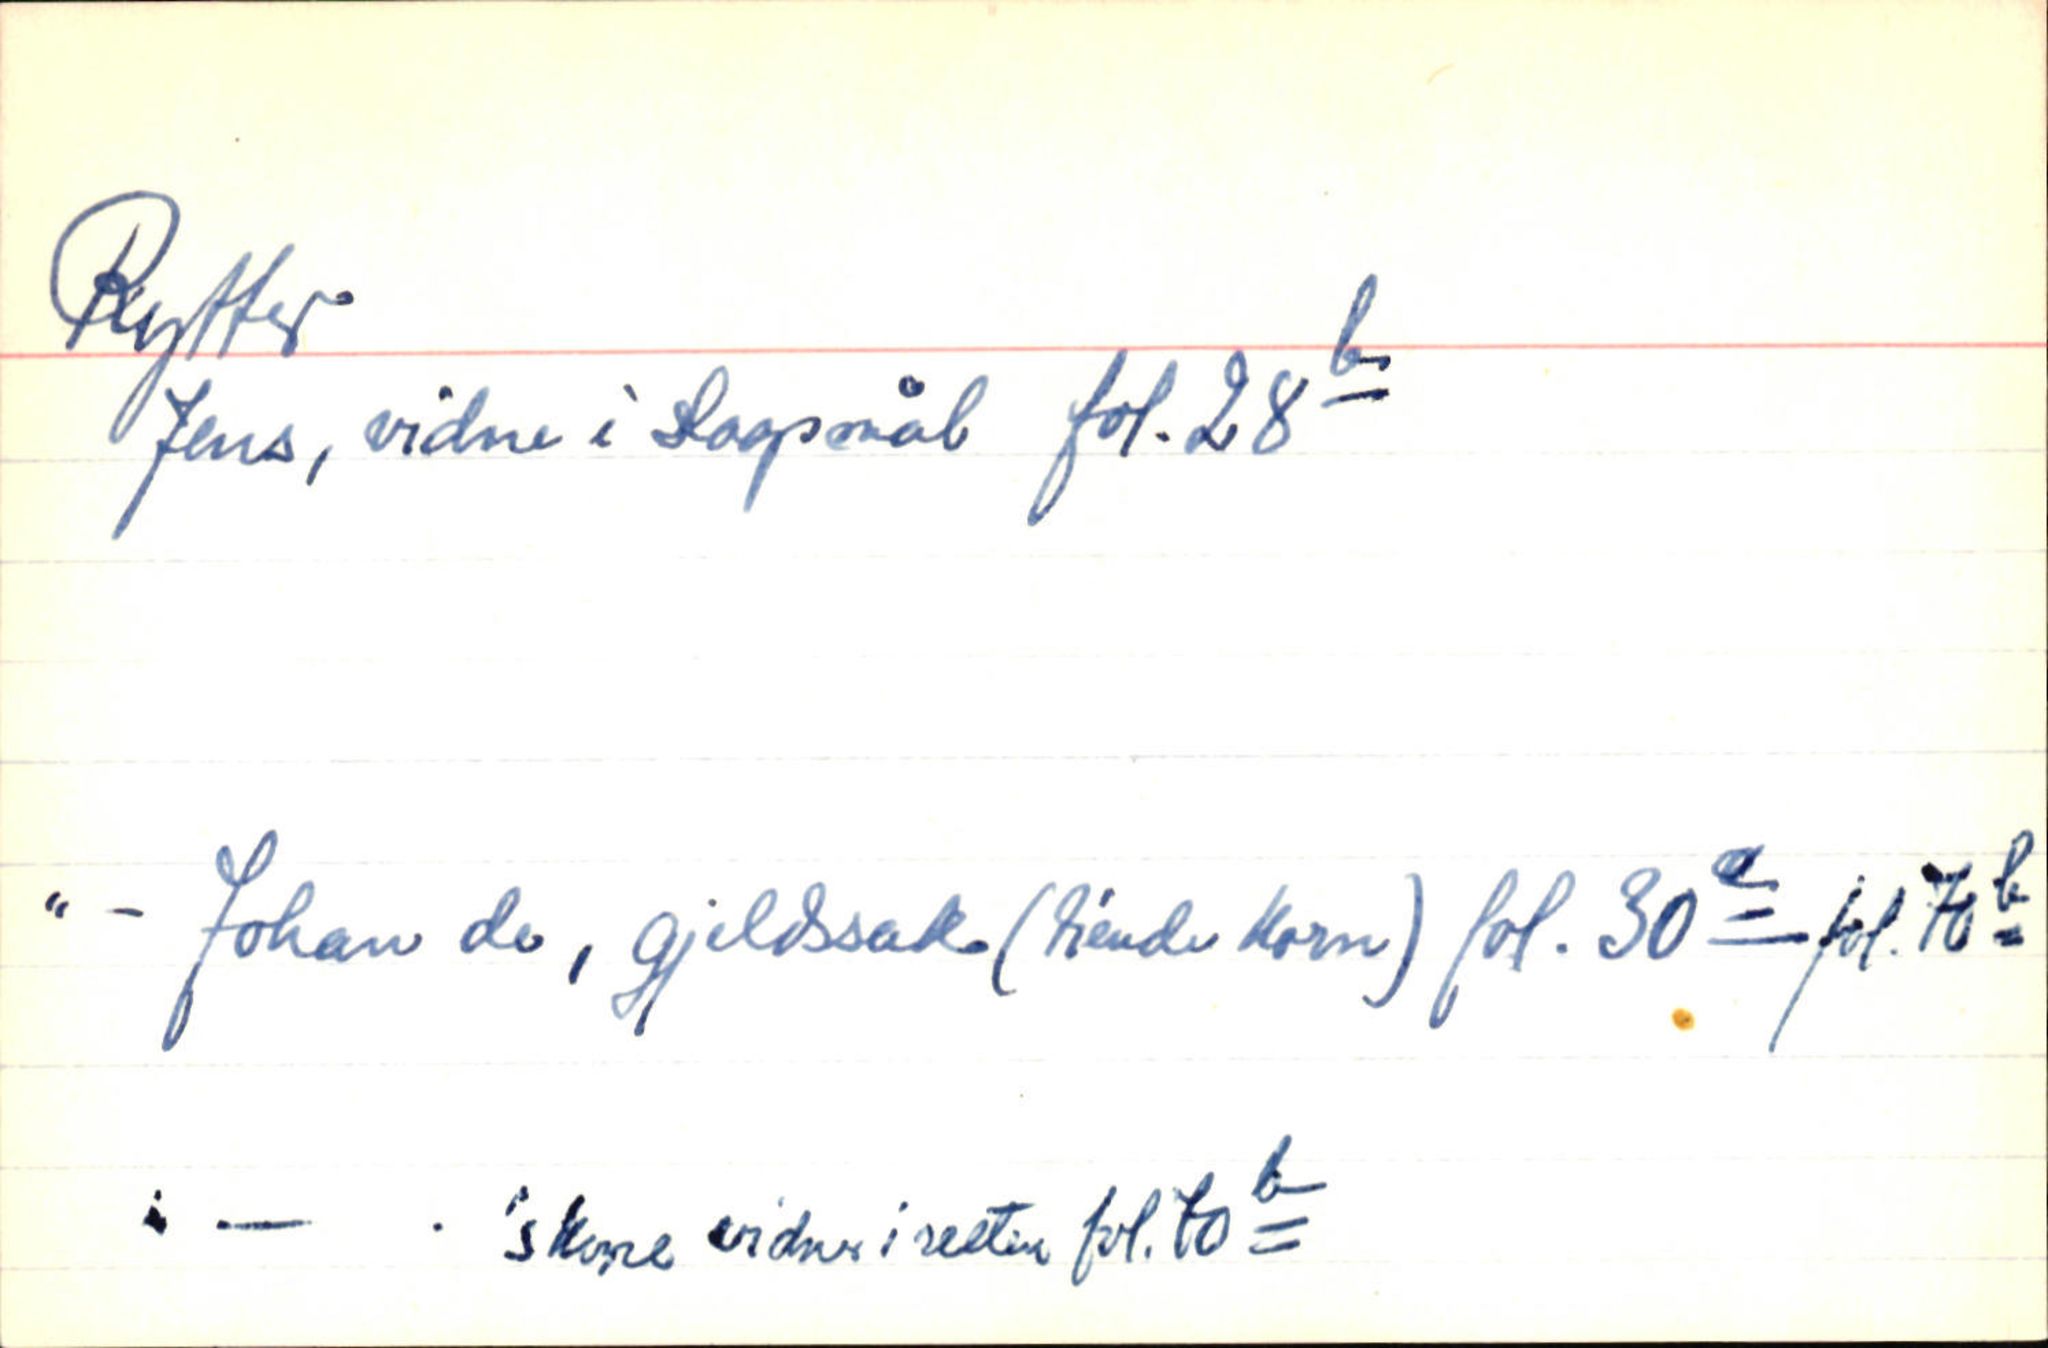 Rytter
Jens, vidne i Slagsmål fol. 28b
" - Johan de, gjeldssak (tiende korn) fol. 30a fol. 70b
" — 's kone vidner i retten fol. 70b